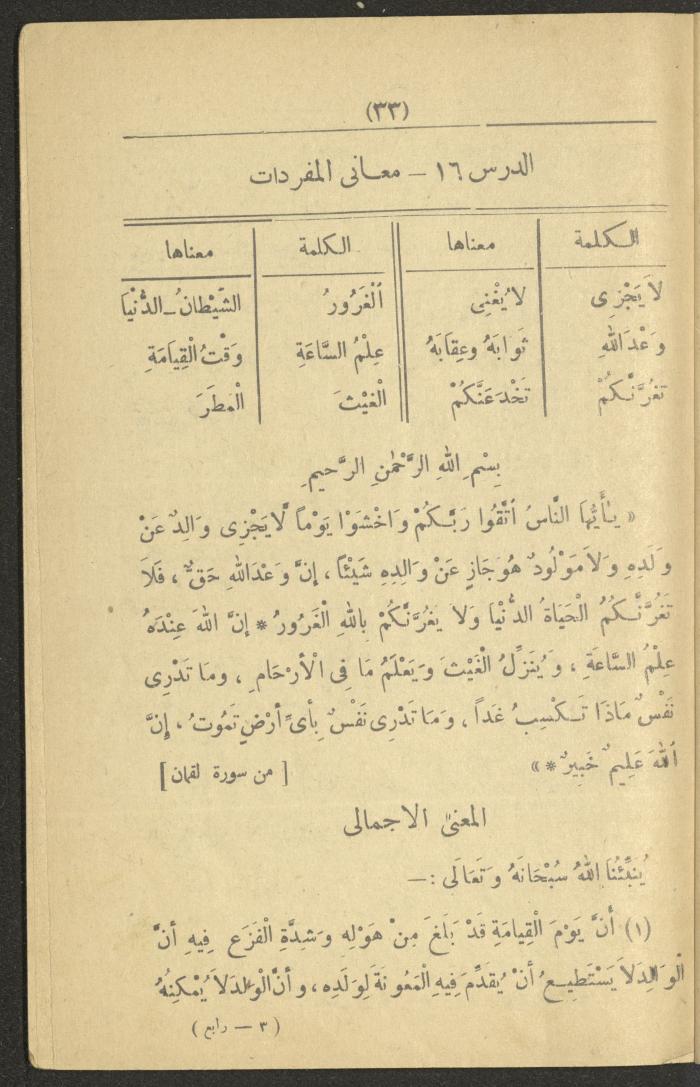 (٣٣)
الدرس ١٦ – معانى المفردات
الكلمة معناها الكلمة معناها
لَا يَجْزِى لا يُغْنِى اَلْغَرُورُ الشَّيْطَانُ – الدُّنْيَا
وَعْدَ اللهِ ثَوَابَهُ وعِقَابَهُ عِلْمُ السَّاعَةِ وَقْتُ الْقِيَامَةِ
تَغُرَّنَّكُمْ تَخْدَعَنَّكُمْ الْغَيْثَ الْمَطَرَ
بِسْمِ اللهِ الرَّحْمٰنِ الرَّحِيمِ
« يٰأَيُّهَا النَّاسُ اُتَّقُوا رَبَّكُمْ وَاخْشَوْا يَوْماً لَّا يَجْزِى وَالِدٌ عَنْ
وَلَدِهِ وَلَا مَوْلُودٌ هُوَ جَازٍ عَنْ وَالِدِهِ شَيْئًا ، إِنَّ وَعْدَ اللهِ حَقٌّ ، فَلَا
تَغُرَّنَّكُمُ الْحَيَاةُ الدُّنْيَا وَلا يَغُرَّنَّكُمْ بِاللهِ الْغَرُورُ * إِنَّ اللهَ عِنْدَهُ
عِلْمُ السَّاعَةِ ، وَيُنَزِّلُ الْغَيْثَ وَيَعْلَمُ مَا فِى الْأَرْحَامِ ، ومَا تَدْرِى
نَفْسٌ مَاذَا تَكْسِبُ غَداً ، وَمَا تَدْرِى نَفْسٌ بِأَىِّ أَرْضٍ تَمُوتُ ، إِنَّ
اَللهَ عَلِيمٌ خَبِيرٌ * » [ من سورة لقمان ]
المعنى الاجمالى
يُنَبِّئُنَا اللهُ سُبْحَانَهُ وَتَعَالَى :—
(١) أَنَّ يَوْمَ الْقِيَامَةِ قَدْ بَلَغَ مِنْ هَوْلِهِ وَشِدَّةِ الْفَزَعِ فِيهِ أَنَّ
الْوَالِدَ لاَ يَسْتَطِيعُ أَنْ يُقَدِّمَ فِيهِ الْمَعُونَةَ لِوَلَدِه ، وأَنَّ الْوَلدَ لاَ يُمْكِنُهُ
( ٣ — رابع )